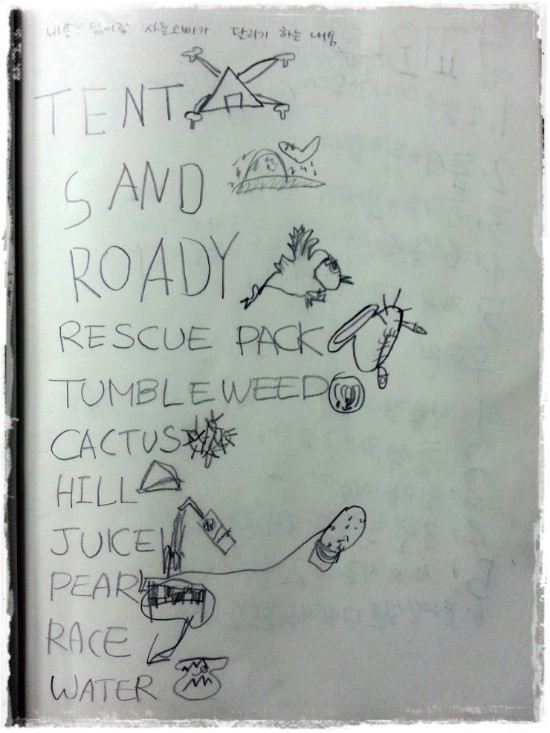 내용: 사촌오빠가 달리기 하는 내용
TENT
SAND
ROADY
RESCUE PACK
TUMBLEWEED
CACTUS
HILL
JUICE
PEAR
RACE
WATER